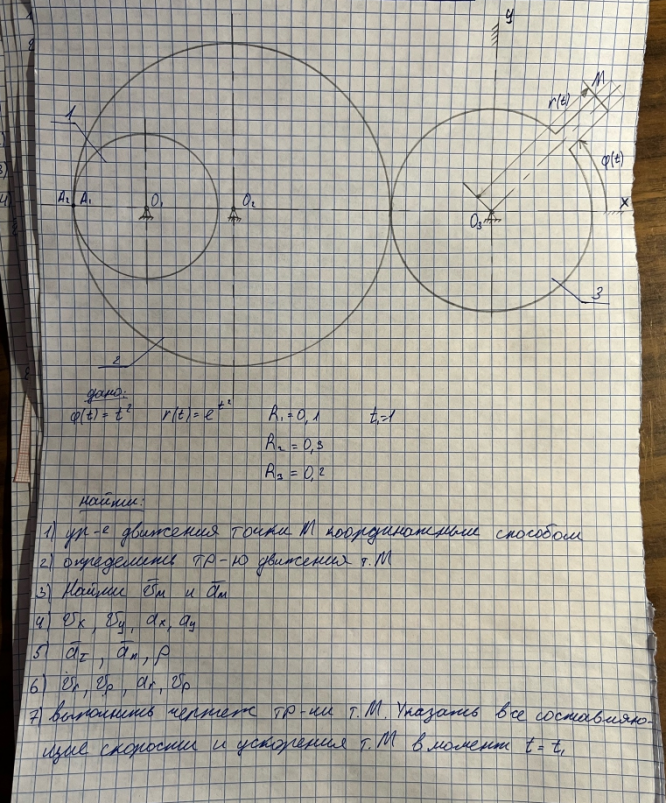 y
M
r(t)
φ(t)
x
1
A₂ A₁ O₁ O₂
O₃
3
2
дано:
φ(t) = t² r(t) = e^t² R₁ = 0,1 t₁=1
R₂ = 0,3
R₃ = 0,2
найти:
1) ур-е движения точки М координатным способом
2) определить тр-ю движения т.М
3) Найти v̄м и āм
4) vx, vy, ax, ay
5) āτ, ān, ρ
6) vr, vp, ar, vp
7) выполнить чертеж тр-ии т.М. Указать все составляю-
щие скорости и ускорения т.М в момент t = t₁